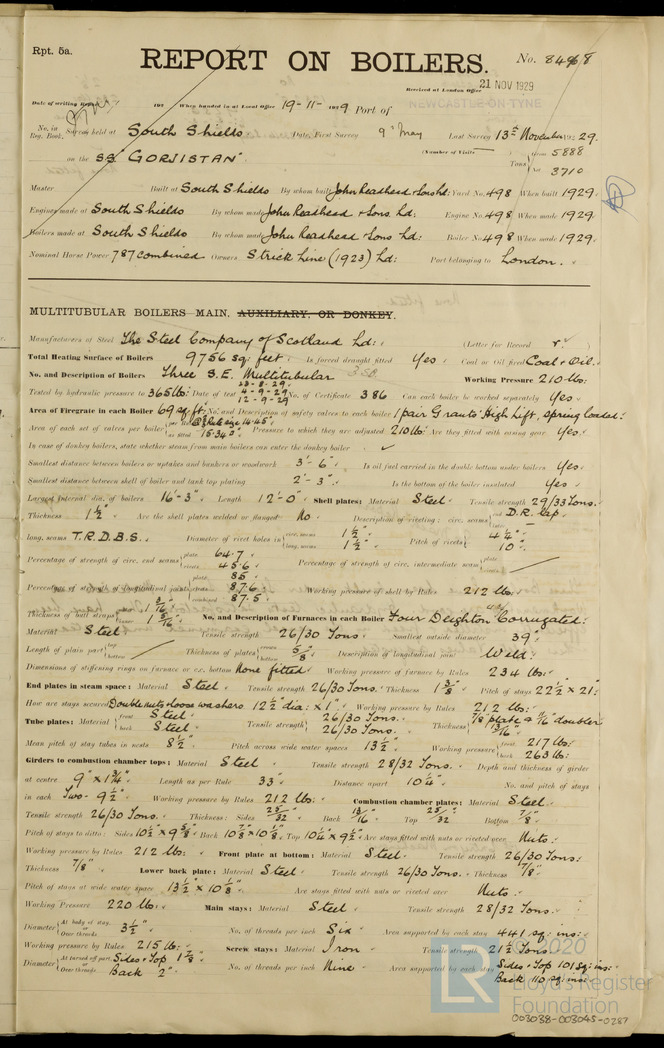 Rpt. 5a.
REPORT ON BOILERS.
No. 84968
Received at London Office 21 NOV 1929
Date of writing Report 192 When handed in at Local Office 19-11- 1929 Port of NEWCASTLE-ON-TYNE
No. in Reg. Book. Survey held at South Shields Date, First Survey 9th May Last Survey 13th November 1929.
(Number of Visits
on the SS "GORJISTAN" Tons Gross 5888 Net 3710
Master Built at South Shields By whom built John Readhead & Sons Ld: Yard No. 498 When built 1929
Engines made at South Shields By whom made John Readhead & Sons Ld: Engine No. 498 When made 1929
Boilers made at South Shields By whom made John Readhead & Sons Ld: Boiler No. 498 When made 1929
Nominal Horse Power 787 combined Owners Strick Line (1923) Ld: Port belonging to London.
MULTITUBULAR BOILERS MAIN, AUXILIARY, OR DONKEY.
Manufacturers of Steel The Steel Company of Scotland Ld: (Letter for Record
Total Heating Surface of Boilers 9756 sq: feet. Is forced draught fitted Yes Coal or Oil fired Coal & Oil.
No. and Description of Boilers Three S.E. Multitubular Working Pressure 210 lbs:
Tested by hydraulic pressure to 365 lbs: Date of test 23-8-29. 4-9-29 12-9-29 No. of Certificate 386 Can each boiler be worked separately Yes
Area of Firegrate in each Boiler 69 sq. ft. No. and Description of safety valves to each boiler 1 pair Gnauts' High Lift, spring loaded:
Area of each set of valves per boiler per Rule 14.45 as fitted 15.34 Pressure to which they are adjusted 210 lb: Are they fitted with easing gear Yes
In case of donkey boilers, state whether steam from main boilers can enter the donkey boiler
Smallest distance between boilers or uptakes and bunkers or woodwork 3'-6" Is oil fuel carried in the double bottom under boilers Yes
Smallest distance between shell of boiler and tank top plating 2'-3" Is the bottom of the boiler insulated Yes
Largest internal dia. of boilers 16'-3" Length 12'-0" Shell plates: Material Steel Tensile strength 29/33 Tons.
Thickness 1½" Are the shell plates welded or flanged No Description of riveting: circ. seams end D.R. Lap
long. seams T.R.D.B.S. Diameter of rivet holes in circ. seams 1½" long. seams 1½" Pitch of rivets 4¼" 10"
Percentage of strength of circ. end seams plate 64.7 rivets 45.6 Percentage of strength of circ. intermediate seam plate rivets
Percentage of strength of longitudinal joint plate 85 rivets 87.6 combined 87.5 Working pressure of shell by Rules 212 lbs:
Thickness of butt straps outer 1 3/16" inner 1 5/16" No. and Description of Furnaces in each Boiler Four Deighton Corrugated:
Material Steel Tensile strength 26/30 Tons Smallest outside diameter 39"
Length of plain part top bottom Thickness of plates crown bottom 5/8" Description of longitudinal joint Weld:
Dimensions of stiffening rings on furnace or c.c. bottom None fitted Working pressure of furnace by Rules 234 lbs:
End plates in steam space: Material Steel Tensile strength 26/30 Tons. Thickness 1 3/8" Pitch of stays 22½ x 21:
How are stays secured Double nuts & loose washers 12½" dia: x 1" Working pressure by Rules 212 lbs:
Tube plates: Material front Steel back Steel Tensile strength 26/30 Tons. 26/30 Tons. Thickness 7/8" plate & 9/16" doubler 13/16"
Mean pitch of stay tubes in nests 8½" Pitch across wide water spaces 13½" Working pressure front 217 lb: back 263 lb:
Girders to combustion chamber tops: Material Steel Tensile strength 28/32 Tons. Depth and thickness of girder
at centre 9" x 1¾" Length as per Rule 33" Distance apart 10¼" No. and pitch of stays
in each Two - 9½" Working pressure by Rules 212 lbs: Combustion chamber plates: Material Steel
Tensile strength 26/30 Tons. Thickness: Sides 23/32" Back 13/16" Top 23/32" Bottom 7/8"
Pitch of stays to ditto: Sides 10½ x 9 5/8 Back 10 7/8 x 10 1/8 Top 10¼ x 9½ Are stays fitted with nuts or riveted over Nuts.
Working pressure by Rules 212 lb: Front plate at bottom: Material Steel. Tensile strength 26/30 Tons:
Thickness 7/8" Lower back plate: Material Steel Tensile strength 26/30 Tons. Thickness 7/8"
Pitch of stays at wide water space 13½ x 10 1/8" Are stays fitted with nuts or riveted over Nuts.
Working Pressure 220 lb: Main stays: Material Steel Tensile strength 28/32 Tons.
Diameter At body of stay, or Over threads 3½" No. of threads per inch Six Area supported by each stay 441 sq: ins:
Working pressure by Rules 215 lb: Screw stays: Material Iron Tensile strength 21½ Tons.
Diameter At turned off part, or Over threads Sides & Top 1 7/8" Back 2" No. of threads per inch Nine Area supported by each stay Sides & Top 101 sq: ins: Back 110 sq: ins:
© 2020
LR Lloyd's Register
Foundation
003038-003045-0287